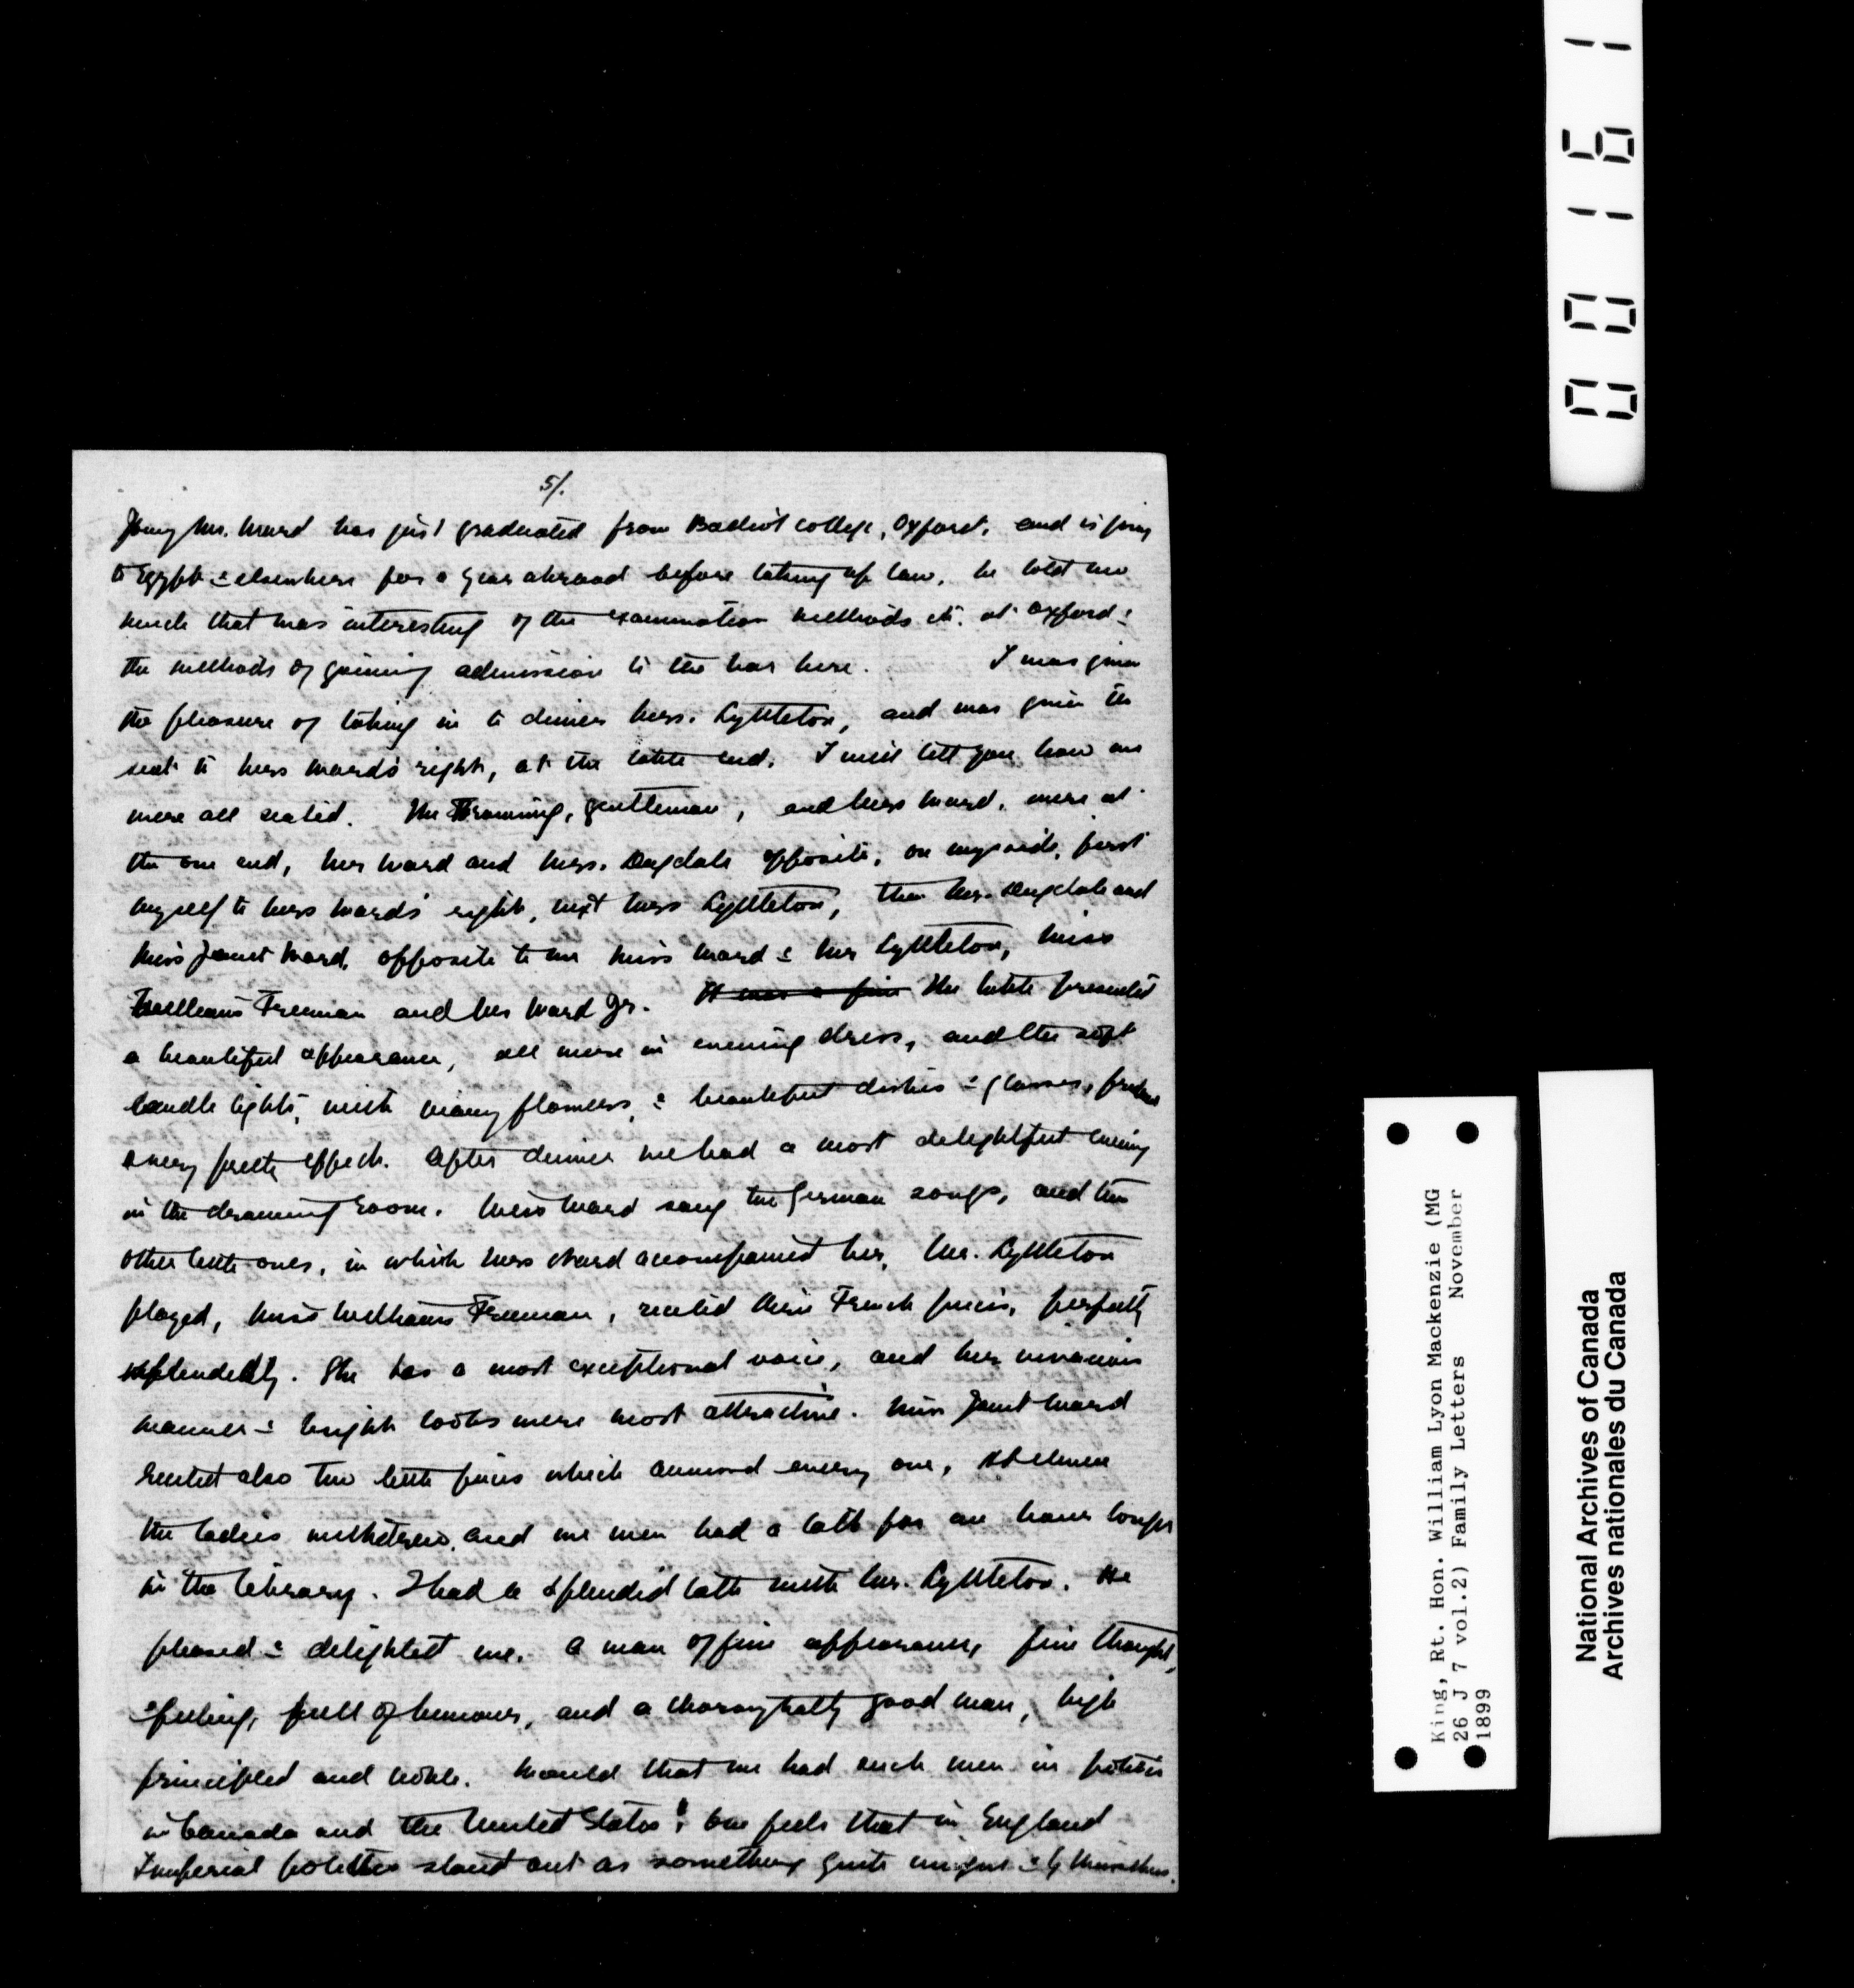 5/.
Young Mr. Ward has just graduated from Balliol College, Oxford, and is going
to Egypt & elsewhere for a year abroad before taking up law. he told me
much that was interesting of the examination methods etc. at Oxford &
the methods of gaining admission to the bar here. I was given
the pleasure of taking in to dinner Mrs. Lyttleton, and was given the
seat to Mrs Ward's right, at the table end. I will tell you how we
were all seated. gentleman, and Mrs Ward, were at
the one end, Mr Ward and Mrs. Dugdale opposite, on my side, first
myself to Mrs Ward's right, next Mrs Lyttleton, then Mr. Dugdale and
Miss Janet Ward, opposite to me Miss Ward & Mr Lyttleton, Miss
Williams Freeman and Mr Ward Jr. It was a fine The table presented
a beautiful appearance, all were in evening dress, and the soft
candle lights, with many flowers, & beautiful dishes & glasses,
a very pretty effect. After dinner we had a most delightful evening
in the drawing room. Miss Ward sang two German songs, and two
other little ones, in which Mrs Ward accompanied her, Mr. Lyttleton
played, Miss Williams Freeman, recited three French pieces, perfectly
splendidly. She has a most exceptional voice, and her vivacious
manner & bright looks were most attractive. Miss Janet Ward
recited also two little pieces which amused every one, At eleven
the ladies withdrew, and we men had a talk for an hour longer
in the library. I had a splendid talk with Mr. Lyttleton. He
pleased & delighted me. A man of fine appearance, fine thought,
& feeling, full of humour, and a thoroughally good man, high
principled and noble. Would that we had such men in politics
in Canada and the United States! One feels that in England
Imperial politics stand out as something quite unique & by themselves.
00161
King, Rt. Hon. William Lyon Mackenzie (MG
26 J 7 vol.2) Family Letters November
1899
National Archives of Canada
Archives nationales du Canada